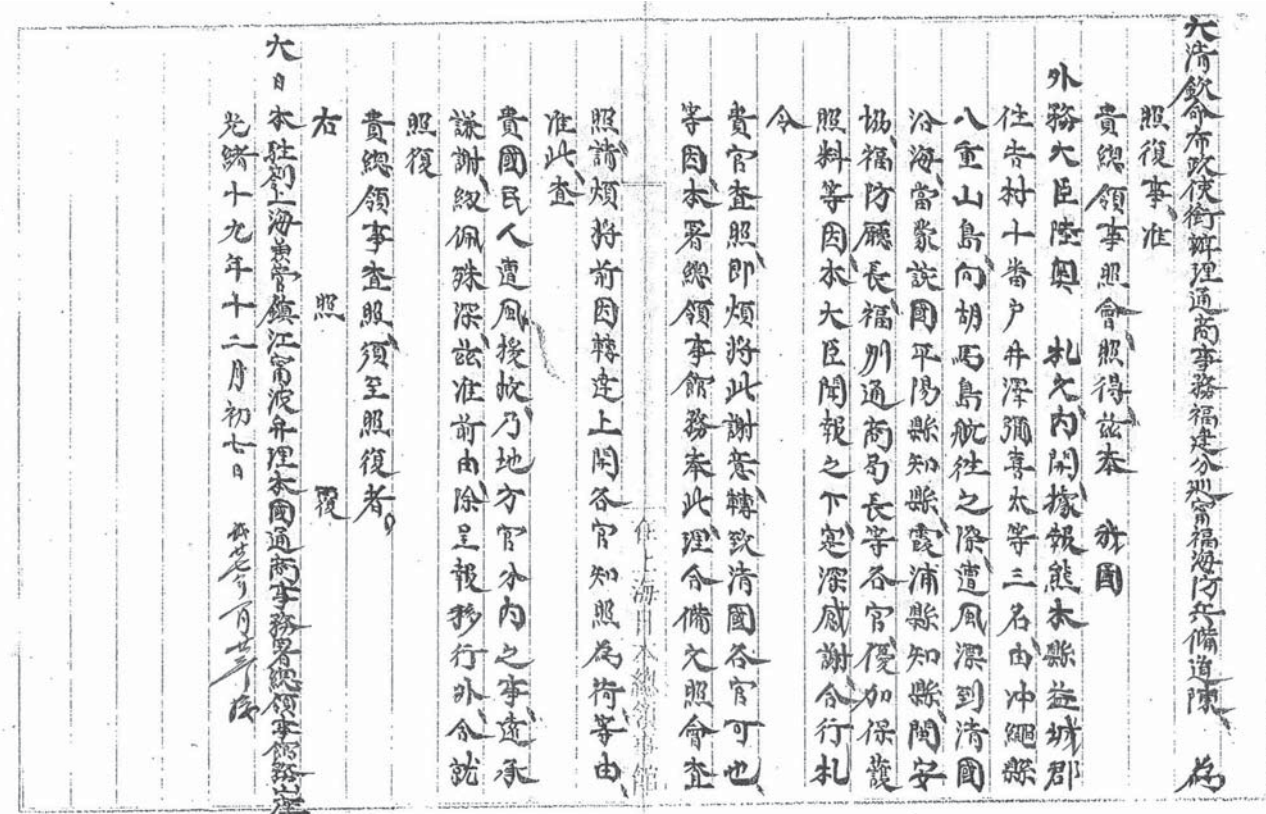 大清欽命布政使銜辦理通商事務福建分巡甯福海防兵備道陳　為
照復事、准
貴總領事照會照得茲奉　我國
外務大臣陸奧　札文內開據報熊本縣益城郡
住吉村十番戶井澤彌喜太等三名由冲繩縣
八重山島向胡馬島航往之際遭風漂到清國
沿海當蒙該國平陽縣知縣霞浦縣知縣閩安
協福防廳長福州通商局長等各官優加保護
照料等因本大臣聞報之下寔深感謝合行札
令
貴官查照即煩將此謝意轉致清國各官可也
等因本署總領事館務奉此理合備文照會查
照請煩將前因轉達上開各官知照為荷等由
准此查
貴國民人遭風授救乃地方官分內之事遠承
謙謝紉佩殊深茲准前由除呈報移行外合就
照復
貴總領事查照須至照復者。
右　照　覆
大日本駐劄上海兼管鎮江甯波弁理本國通商事務署總領事館務山座
光緒十九年十二月初七日
在上海日本總領事館